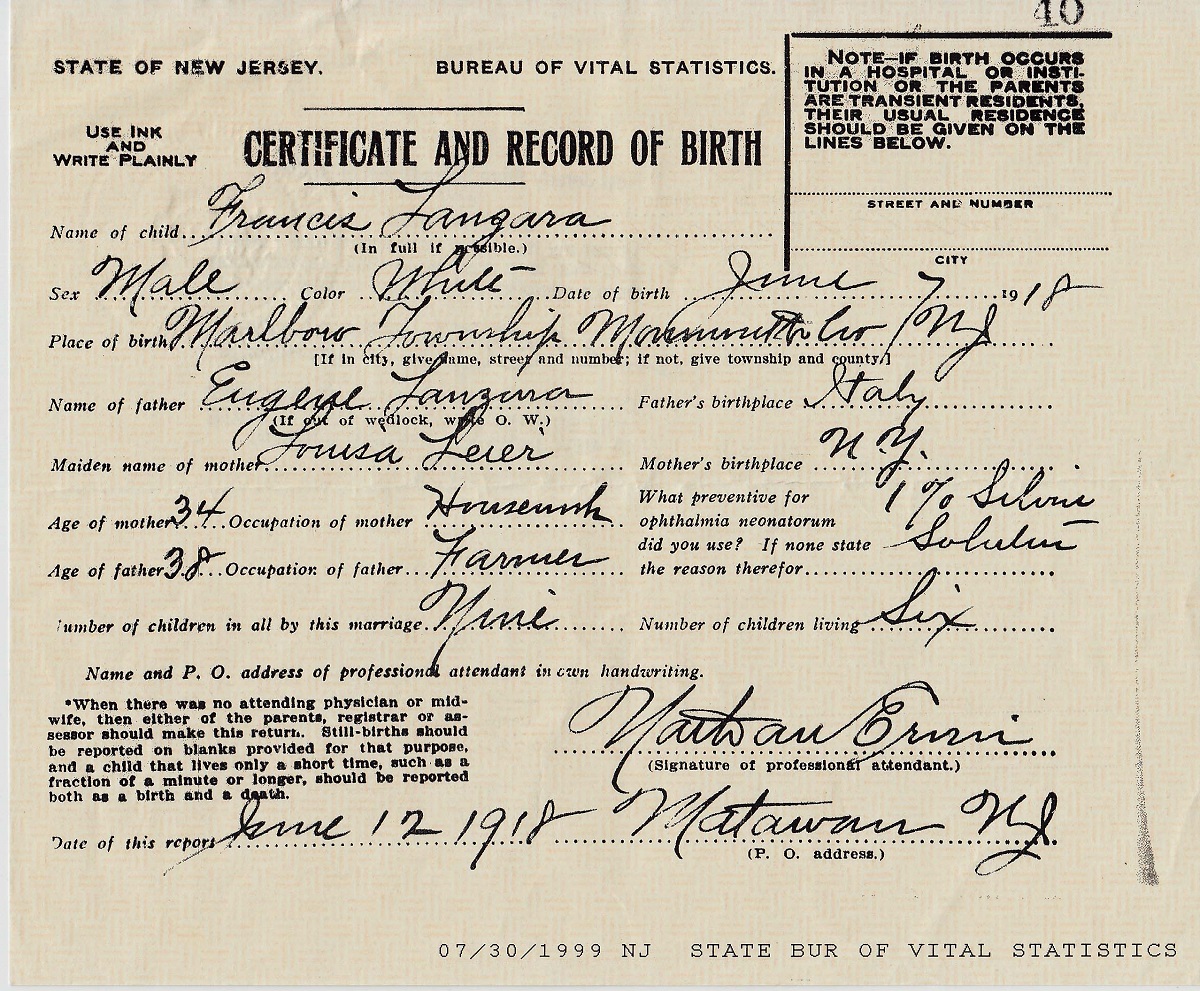 40
STATE OF NEW JERSEY. BUREAU OF VITAL STATISTICS.
USE INK
AND
WRITE PLAINLY
CERTIFICATE AND RECORD OF BIRTH
NOTE—IF BIRTH OCCURS
IN A HOSPITAL OR INSTI-
TUTION OR THE PARENTS
ARE TRANSIENT RESIDENTS,
THEIR USUAL RESIDENCE
SHOULD BE GIVEN ON THE
LINES BELOW.
STREET AND NUMBER
CITY
Name of child Francis Langara
(In full if possible.)
Sex Male Color White Date of birth June 7 1918
Place of birth Marlboro Township Monmouth Co NJ
[If in city, give name, street and number; if not, give township and county.]
Name of father Eugene Lanzara Father's birthplace Italy
(If out of wedlock, write O. W.)
Maiden name of mother Louisa Leier Mother's birthplace N.Y.
Age of mother 34 Occupation of mother Housewife
What preventive for 1% Silver
ophthalmia neonatorum
did you use? If none state Solution
the reason therefor
Age of father 38 Occupation of father Farmer
Number of children in all by this marriage Nine Number of children living Six
Name and P. O. address of professional attendant in own handwriting.
*When there was no attending physician or mid-
wife, then either of the parents, registrar or as-
sessor should make this return. Still-births should
be reported on blanks provided for that purpose,
and a child that lives only a short time, such as a
fraction of a minute or longer, should be reported
both as a birth and a death.
(Signature of professional attendant.)
Date of this report June 12 1918 Matawan NJ
(P. O. address.)
07/30/1999 NJ STATE BUR OF VITAL STATISTICS